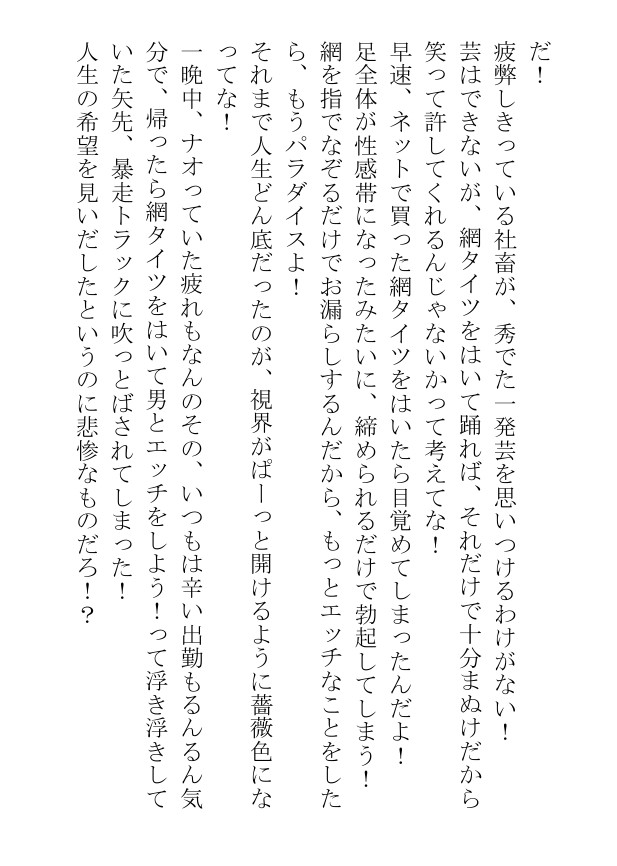 だ！
疲弊しきっている社畜が、秀でた一発芸を思いつけるわけがない！
芸はできないが、網タイツをはいて踊れば、それだけで十分まぬけだから
笑って許してくれるんじゃないかって考えてな！
早速、ネットで買った網タイツをはいたら目覚めてしまったんだよ！
足全体が性感帯になったみたいに、締められるだけで勃起してしまう！
網を指でなぞるだけでお漏らしするんだから、もっとエッチなことをした
ら、もうパラダイスよ！
それまで人生どん底だったのが、視界がぱーっと開けるように薔薇色にな
ってな！
一晩中、ナオっていた疲れもなんのその、いつもは辛い出勤もるんるん気
分で、帰ったら網タイツをはいて男とエッチをしよう！って浮き浮きして
いた矢先、暴走トラックに吹っとばされてしまった！
人生の希望を見いだしたというのに悲惨なものだろ！？